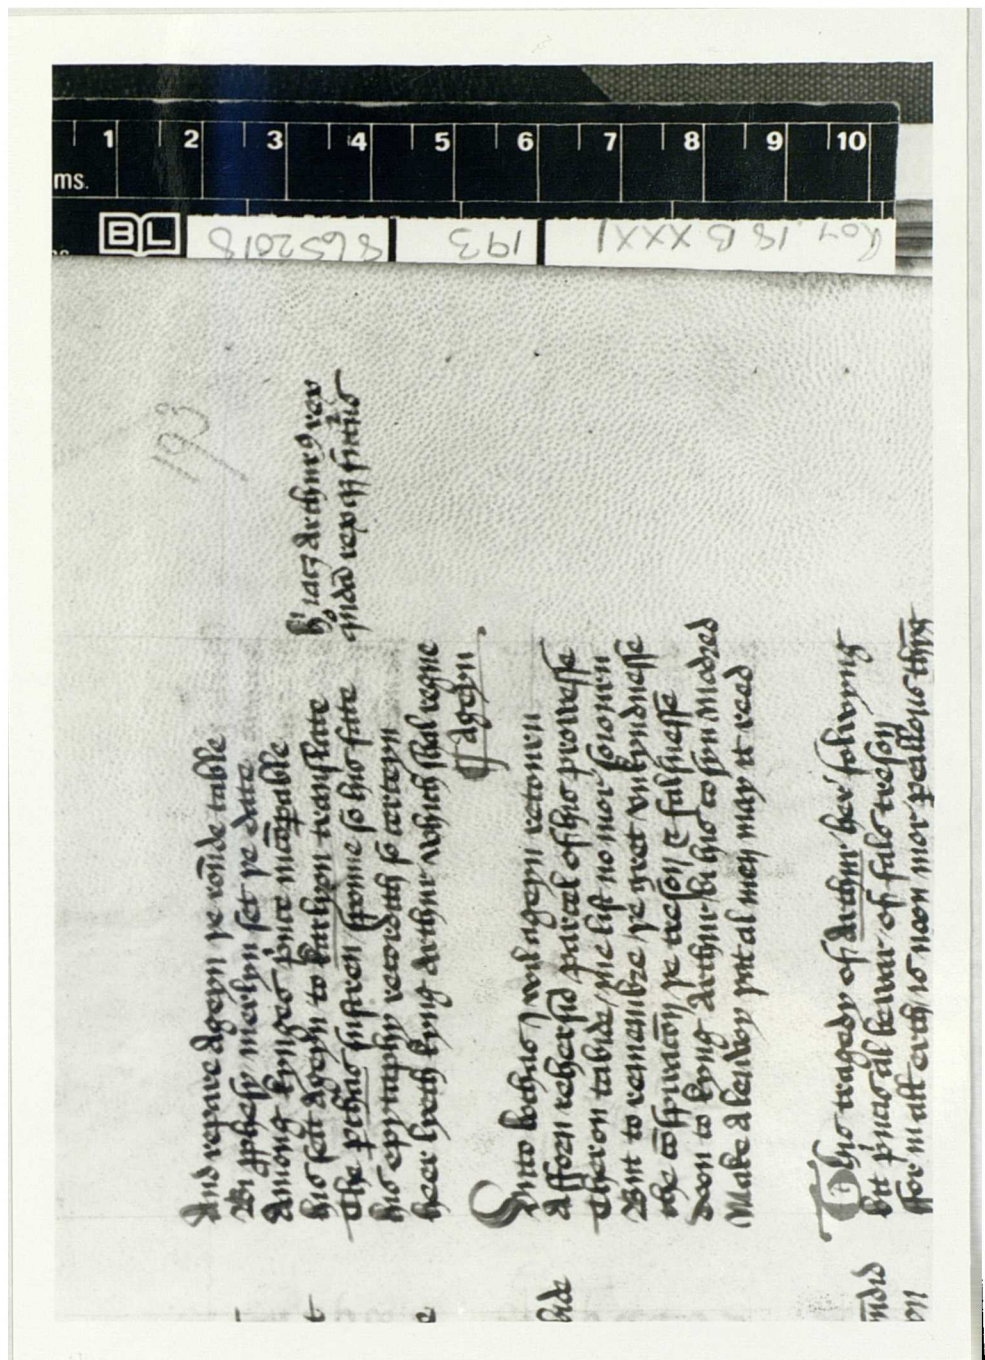 1 2 3 4 5 6 7 8 9 10
ms.
BL
Roy. 18 B XXXI
193
8652018
193
And repaire ageyn þe roūde table
Bi ꝓphesy merlyn set þe date
Among kynges ꝓince incōꝑable
his seet ageyn to karlyon translate
The ꝑchas sustren sponne so his fate
his epytaphy recordith so certeyn
heer lyeth kyng Arthur which shal regne
ageyn
hic iacet Arthurus rex
quondā rex qz futurus
Unto bochas I wil ageyn retourn
Afforn rehersid parcel of his prowesse
Theron tabide me list no mor soiourn
But to remembre þe gret vnkyndnesse
the cōspiracōn þe treson & falsnesse
doon to kyng Arthur bi his cosyn Modred
Make a lenvoy þat al men may it reed
This tragedy of Arthur her folwyng
bit ꝓincis al bewar of fals treson
For in all erth is noon mor peallous thing
t
e
bide
on